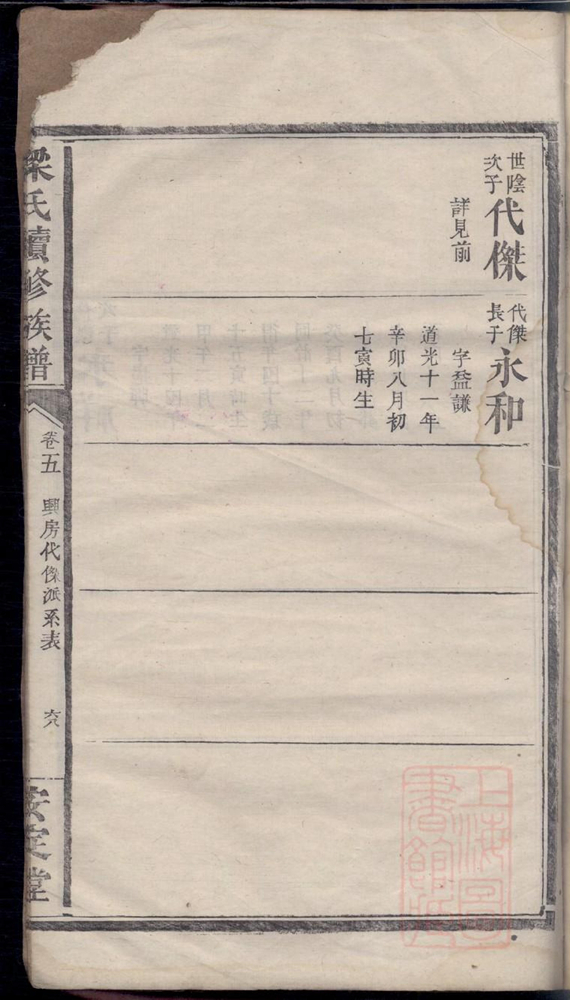 世陰
次子
代傑
詳見前
代傑
長子
永和
字益謙
道光十一年
辛卯八月初
七寅時生
梁氏續修族譜
卷五
興房代傑派系表
六八
安定堂
上海圖書館藏